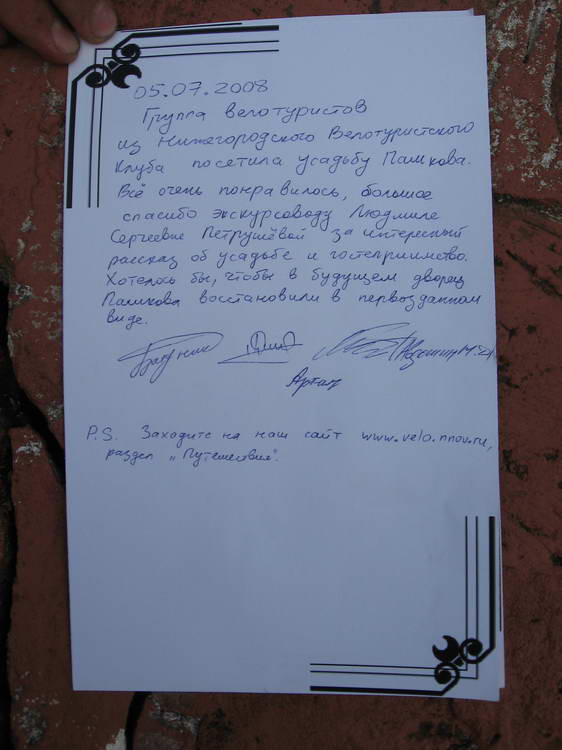 05.07.2008
Группа велотуристов
из Нижегородского Велотуристского
Клуба посетила усадьбу Пашкова.
Всё очень понравилось, большое
спасибо экскурсоводу Людмиле
Сергеевне Петрушёвой за интересный
рассказ об усадьбе и гостеприимство.
Хотелось бы, чтобы в будущем дворец
Пашкова восстановили в первозданном
виде.
Артам
P.S. Заходите на наш сайт www.velo.nnov.ru,
раздел „Путешествия".